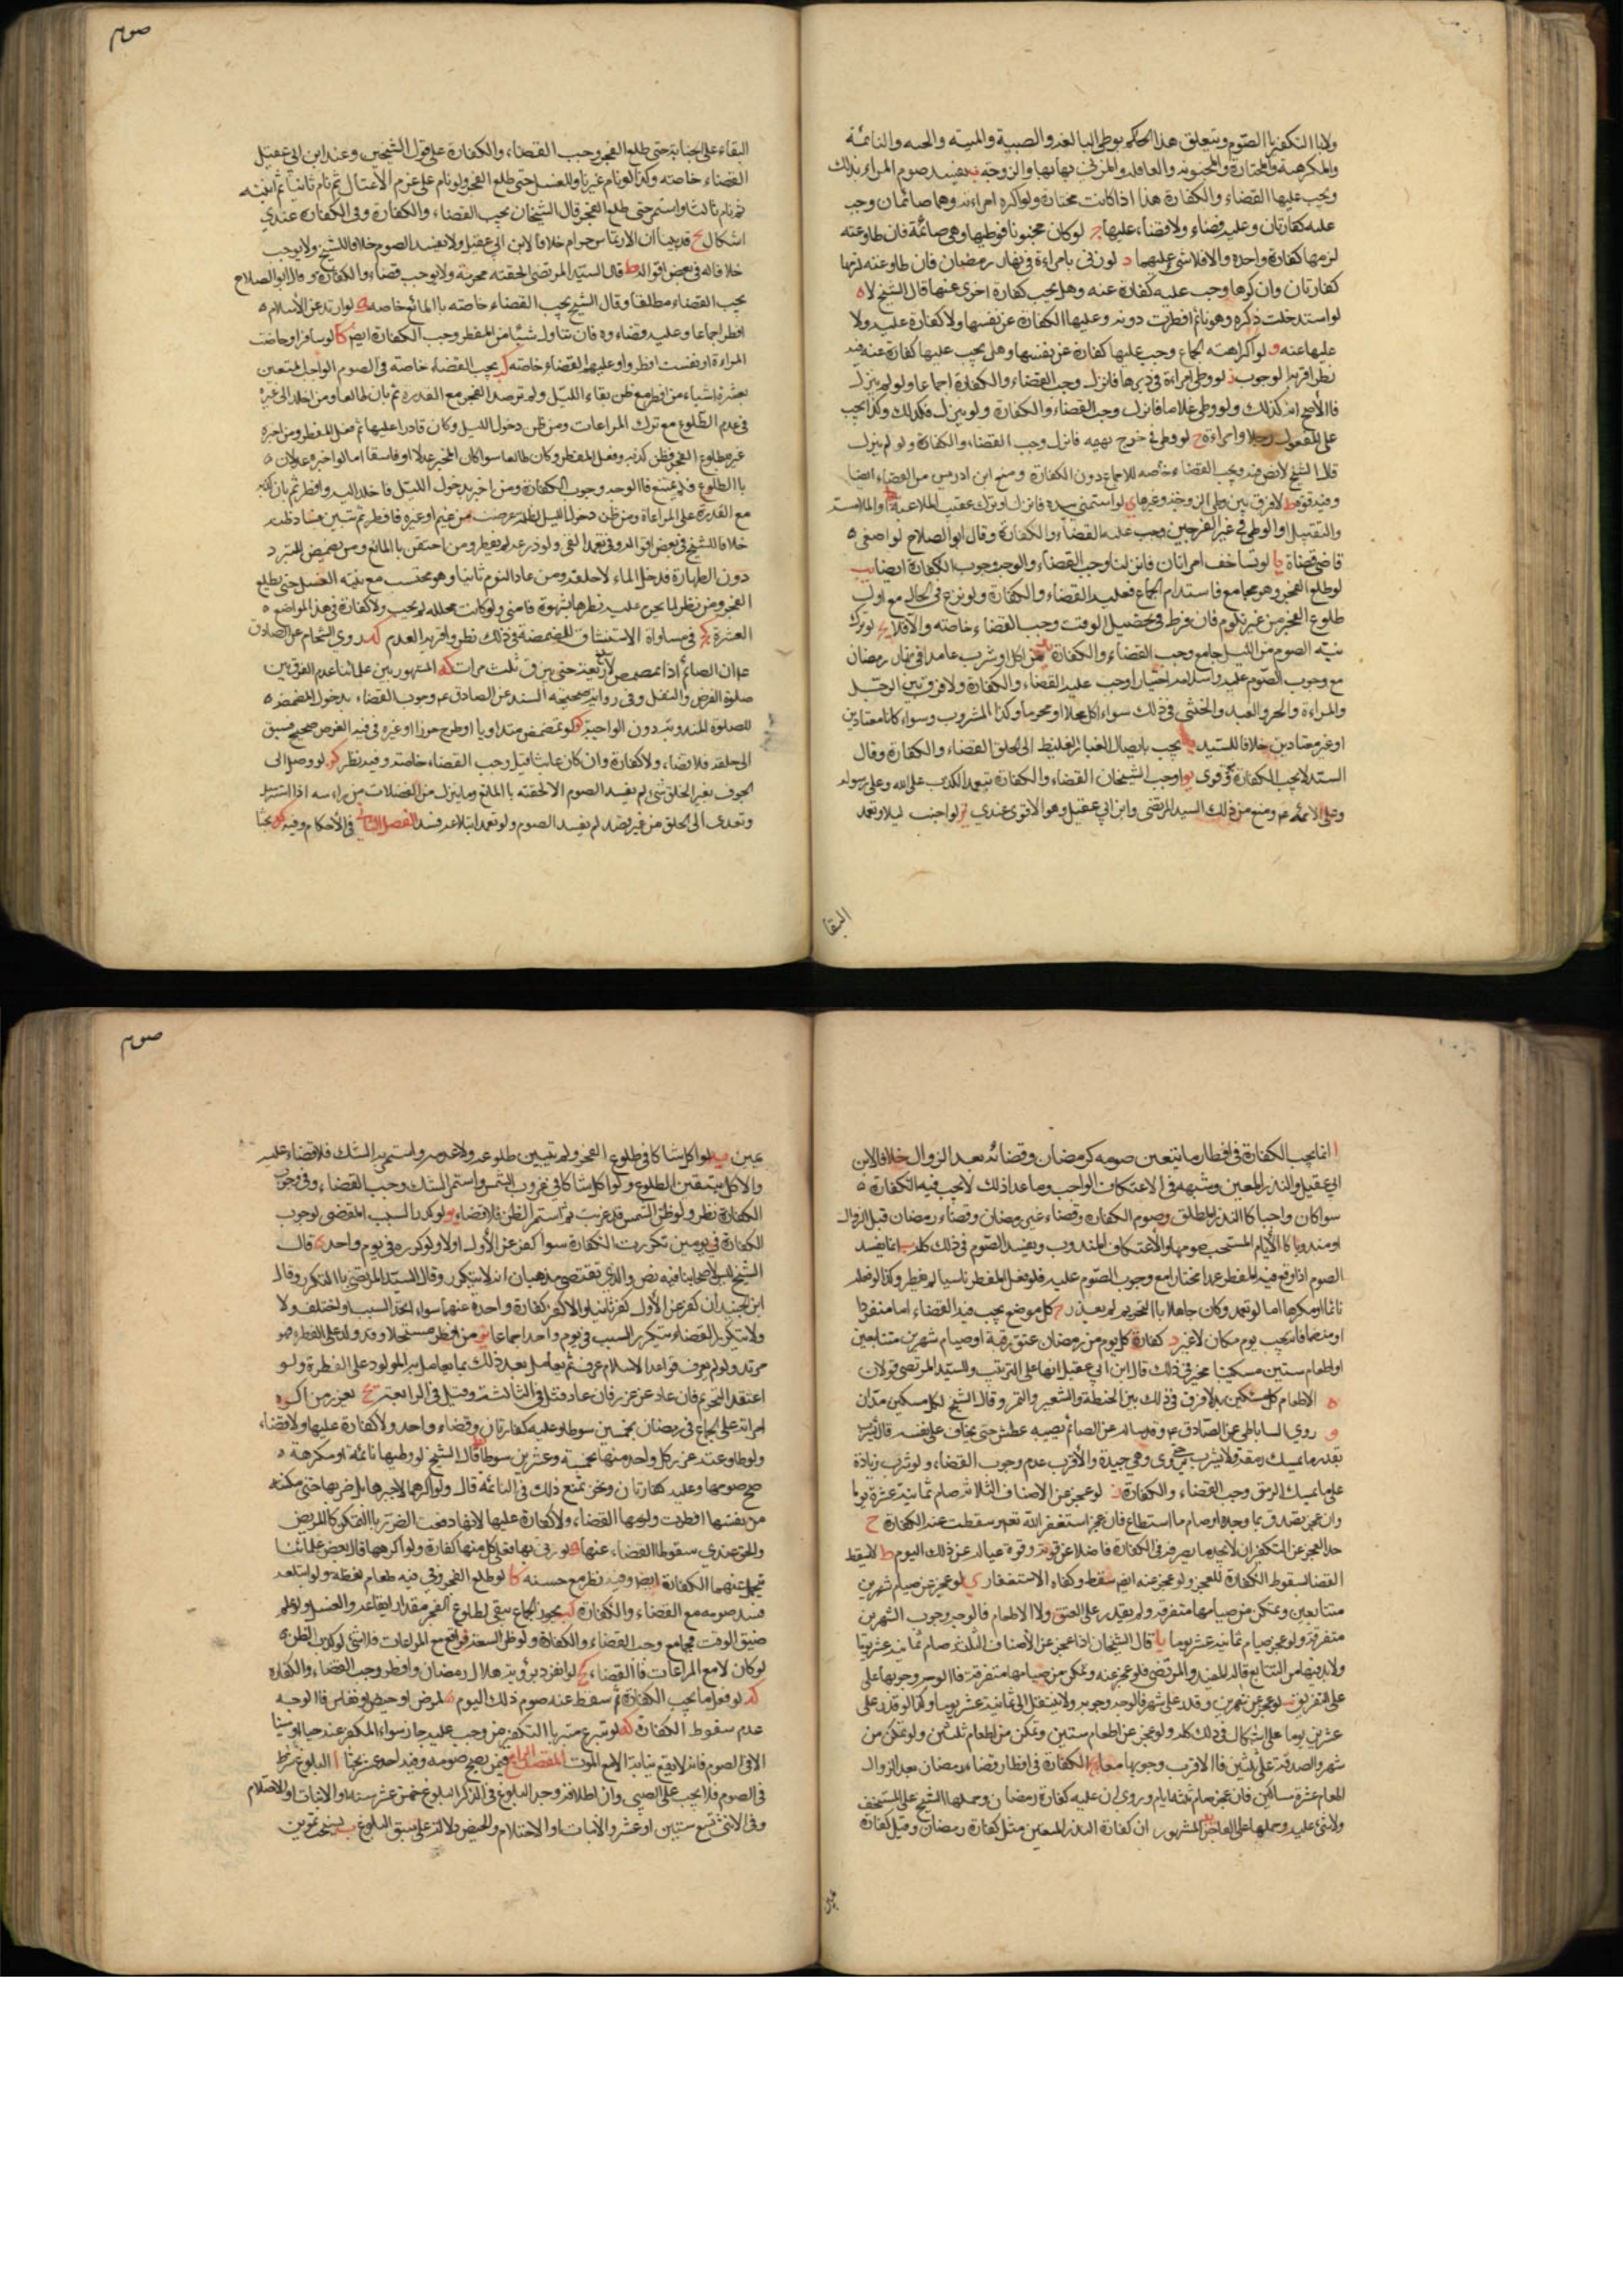 ولا باالتكفير باالصوم ويتعلق هذا الحكم بوطي البالغه والصبية والميته والحيه والنائمة
والمكرهة والمختارة والمجنونه والعاقله والمزني بها والزوجة يفسد صوم المراءه بذلك
ويجب عليها القضاء والكفارة هذا اذا كانت مختارة ولو اكره امراءته وهما صائمان وجب
عليه كفارتان وعليه قضاء ولا قضاء عليها ج لو كان مجنونا فوطيها وهي صائمة فان طاوعته
لزمها كفارة واحدة والا فلا شي عليهما د لو زنى بامراءة في نهار رمضان فان طاوعته لزمها
كفارتان وان كرها وجب عليه كفارة عنه وهل يجب كفارة اخرى عنها قال الشيخ لا ه
لو استدخلت ذكره وهو نائم افطرت دونه وعليها الكفارة عن نفسها ولا كفارة عليه ولا
عليها عنه و لو اكراهته الجماع وجب عليها كفارة عن نفسها وهل يجب عليها كفارة عنه فيه
نظر اقربه الوجوب ز لو وطي امراءة في دبرها فانزل وجب القضاء والكفارة اجماعا ولو لم ينزل
فاالأصح انه كذلك ولو وطي غلاما فانزل وجب القضاء والكفارة ولو لم ينزل فكذلك وكذا يجب
على المفعول رجلا وامراءة ح لو وطي في فرج بهيمه فانزل وجب القضاء والكفارة ولو لم ينزل
قال الشيخ لا نص فيه ويجب القضاء خاصه للاجماع دون الكفارة ومنع ابن ادريس من القضاء ايضا
وفيه قوة ط لا فرق بين وطي الزوجة وغيرها ي لو استمنى بيده فانزل او نزل عقيب الملاعبة او الملامسة
والتقبيل او الوطي في غير الفرجين وجب عليه القضاء والكفارة وقال ابو الصلاح لو اصغى ه
فامنى قضاة يا لو تساحقت امراءتان فانزلتا وجب القضاء والوجه وجوب الكفارة ايضا يب
لو طلع الفجر وهو مجامع فاستدام الجماع فعليه القضاء والكفارة ولو نزع في الحال مع اول
طلوع الفجر من غير تلوم فان فرط في تحصيل الوقت وجب القضاء خاصه والا فلا يج لو ترك
نيته الصوم من الليل جامع وجب القضاء والكفارة يد من اكل او شرب عامدا في نهار رمضان
مع وجوب الصوم عليه واسلامه اختيارا وجب عليه القضاء والكفارة ولا فرق بين الرجل
والمراءة والحر والعبد والخنثى في ذلك سواء اكل محللا او محرما وكذا المشروب وسواء كانا معتادين
او غير معتادين خلافا للسيد يه يجب بايصال الغبار الغليظ الى الحلق القضاء والكفارة وقال
السيد لا يجب الكفارة وقوى يو اوجب الشيخان القضاء والكفارة بتعمد الكذب على الله وعلى رسوله
وعلى الائمة ع ومنع من ذلك السيد المرتضى وابن ابي عقيل وهو الاقوى عندي يز لو اجنب ليلا وتعمد
البقا
صوم
البقاء على الجنابة حتى طلع الفجر وجب القضاء والكفارة على قول الشيخين وعند ابن ابي عقيل
القضاء خاصته وكذا لو نام غير ناو للغسل حتى طلع الفجر ولو نام على عزم الأغتسال ثم نام ثانيا ثم انتبه
ثم نام ثالثا واستمر حتى طلع الفجر قال الشيخان يجب القضاء والكفارة وفي الكفارة عندي
اشكال يح قد بينا ان الارتماس حرام خلافا لابن ابي عقيل ولا يفسد الصوم خلافا للشيخ ولا يوجب
خلافا له في بعض اقواله يط قال السيد المرتضى الحقنه محرمة ولا يوجب قضاء والكفارة وقال ابو الصلاح
يجب القضاء مطلقا وقال الشيخ يجب القضاء خاصته باالمائع خاصه ك لو ارتد عن الاسلام ه
افطر اجماعا وعليه قضاوه فان تناول شيئا من المفطر وجب الكفارة ايضا كا لو سافر او حاضت
المراءة او نفست افطروا وعليهم القضاء خاصته كب يجب القضاء خاصته في الصوم الواجب المتعين
بعشرة اشياء من افطر مع ظن بقاء الليل ولم ترصد الفجر مع القدرة ثم بان طالعا ومن اخلد الى غيره
في عدم الطلوع مع ترك المراعات ومن ظن دخول الليل وكان قادرا عليها ثم فعل المفطر ومن اخبره
غيره بطلوع الفجر فظن كذبه وفعل المفطر وكان طالعا سواء كان المخبر عدلا او فاسقا اما لو اخبره عدلان ه
باالطلوع فلم يمتنع فاالوجه وجوب الكفارة ومن اخبر بدخول الليل فاخلد اليه وافطر ثم بان كذبه
مع القدرة على المراعاة ومن ظن دخول الليل لظلمة عرضت من غيم او غيره فافطر ثم تبين فساد ظنه
خلافا للشيخ في بعض اقواله وفي تعمد القي ولو ذرعه لم يفطر ومن احتقن باالمائع ومن تمضمض للتبرد
دون الطهارة فدخل الماء لا حلقه ومن عاد النوم ثانيا وهو مجنب مع نية الغسل حتى يطلع
الفجر ومن نظر لما يحرم عليه نظرها بشهوة فامنى ولو كانت محللة لم يجب ولا كفارة في هذا المواضع ه
العشرة كج في مساواة الاستنشاق للمضمضة في ذلك نظر واقربه العدم كد روى الشحام عن الصادق
ع ان الصائم اذا تمضمض لا يبلع ريقه حتى يبزق ثلث مرات كه المشهور بين علمائنا عدم الفرق بين
صلوة الفرض والنفل وفي رواية صحيحه السند عن الصادق ع وجوب القضاء بدخول المضمضة ه
للصلوة المندوبة دون الواجبة كو لو تمضمض متداويا او طرح خرزا او غيره في فيه الغرض صحيح فسبق
الى حلقه فلا قضاء ولا كفارة وان كان عابثا قيل وجب القضاء خاصته وفيه نظر كز لو وصل الى
الجوف بغير الحلق شي لم يفسد الصوم الا الحقنه باالمائع وما ينزل من الفضلات من راءسه اذا استرسل
وتعدى الى الحلق من غير قصد لم يفسد الصوم ولو تعمد ابتلاعه فسد الفصل الثاني في الأحكام وفيه بحثا
ا انما يجب الكفارة في افطار ما يتعين صومه كرمضان وقضائه بعد الزوال خلافا لابن
ابي عقيل والنذر المعين وشبهه في الاعتكاف الواجب وما عدا ذلك لا يجب فيه الكفارة ه
سواء كان واجبا كاالنذر المطلق وصوم الكفارة وقضاء غير رمضان وقضاء رمضان قبل الزوال
او مندوبا كاالأيام المستحب صومها والأعتكاف المندوب ويفسد الصوم في ذلك كله ب انما يفسد
الصوم اذا وقع فيه المفطر عمدا مختارا مع وجوب الصوم عليه فلو فعل المفطر ناسيا لم يفطر وكذا لو فعله
نائما او مكرها اما لو تعمد وكان جاهلا باالتحريم لم يعذر ج كل موضع يجب فيه القضاء اما منفردا
او منضما فانه يجب يوم مكان لا غير د كفارة كل يوم من رمضان عتق رقبة او صيام شهرين متتابعين
او اطعام ستين مسكينا مخير في ذلك قال ابن ابي عقيل انها على الترتيب وللسيد المرتضى قولان
ه الاطعام كل مسكين مد لا فرق في ذلك بين الحنطة والشعير والتمر وقال الشيخ لكل مسكين مدان
و روي الساباطي عن الصادق ع وقد ساله عن الصائم يصيبه عطش حتى يخاف على نفسه قال يشرب
بقدر ما يمسك رمقه ولا يشرب حتى يروي وهي جيدة والأقرب عدم وجوب القضاء ولو شرب زيادة
على ما يمسك الرمق وجب القضاء والكفارة ز لو عجز عن الاصناف الثلاثة صام ثمانية عشرة يوما
وان عجز تصدق بما وجد او صام ما استطاع فان عجز استغفر الله تعالى سقطت عنه الكفارة ح
حد العجز عن التكفير ان لا يجد ما يصرفه في الكفارة فاضلا عن قوته وقوة عياله عن ذلك اليوم ط لا يسقط
القضا لسقوط الكفارة للعجز ولو عجز عنه ايضا سقط وكفاه الاستغفار ي لو عجز عن صيام شهرين
متتابعين وتمكن من صيامها متفرقة ولم يقدر على العتق ولا الاطعام فالوجه وجوب الشهرين
متفرقة ولو عجز صيام ثمانية عشر يوما يا قال الشيخان اذا عجز عن الأصناف الثلثة صام ثمانية عشر يوما
ولا بد فيها من التتابع قاله المفيد والمرتضى فلو عجز عنه وتمكن من صيامها متفرقة فاالوجه وجوبها على
على التفريق يب لو عجز عن شهرين وقدر على شهر فالوجه وجوبه ولا ينتقل الى ثمانية عشر يوما وكذا لو قدر على
عشرين يوما على اشكال في ذلك كله ولو عجز عن اطعام ستين وتمكن من اطعام ثلثين ولو تمكن من
شهر والصدقة على ثلثين فاالاقرب وجوبها معا يج الكفارة في افطار قضاء رمضان بعد الزوال
اطعام عشرة مساكين فان عجز صام ثلثة ايام وروي ان عليه كفارة رمضان وحملها الشيخ على المستخف
ولا شئ عليه وحملها على العاجز يد المشهور ان كفارة النذر المعين مثل كفارة رمضان وقيل كفارة
صوم
عين يه لو اكل شاكا في طلوع الفجر ولم تتبين طلوعه ولا عدمه واستمر به الشك فلا قضاء عليه
والاكل يتيقن الطلوع ولو اكل شاكا في غروب الشمس واستمر الشك وجب القضاء وفي وجوب
الكفارة نظر ولو ظن الشمس قد غربت ثم استمر الظن فلا قضاء يو لو كرر السبب المقضى لوجوب
الكفارة في يومين تكررت الكفارة سواء كفر عن الأول اولا ولو كرره في يوم واحد قال
الشيخ ليس لاصحابنا فيه نص والذي يقتضى مذهبنا انه لا يتكرر وقال السيد المرتضى باالتكرر وقال
ابن الجنيد ان كفر عن الأول كفر ثانيا والا كفر كفارة واحدة عنهما سواء اتحد السبب او اختلف ولا
ولا يتكرر القضاء بتكرر السبب في يوم واحد اجماعا يز من افطر مستحلا وقد ولد على الفطرة فهو
مرتد ولو لم يعرف قواعد الاسلام عرف ثم يعامل بعد ذلك بما يعامل به المولود على الفطرة ولو
اعتقد التحريم فان عاد عزر فان عاد قتل في الثالثة وقيل في الرابعة يح يعزر من اكره
امراته على الجماع في رمضان بخمسين سوطا وعليه كفارتان وقضاء واحد ولا كفارة عليها ولا قضاء
ولو طاوعته عزر كل واحد منهما بخمسة وعشرين سوطا قال الشيخ لو وطيها نائمة او مكرهة ه
صح صومها وعليه كفارتان ونحن نمنع ذلك في النائمة قال ولو اكرهها لا جبرها بل ضربها حتى مكنته
من نفسها افطرت ولزمها القضاء ولا كفارة عليها لانها دفعت الضرر باالتمكين كاالمريض
والحق عندي سقوط القضاء عنها ك لو زنى بها فعلى كل منهما كفارة ولو اكرهها قال بعض علمائنا
يتحمل عنها الكفارة ايضا وفيه نظر مع حسنه كا لو طلع الفجر وفي فيه طعام لفظه ولو ابتلعه
فسد صومه مع القضاء والكفارة كب يجوز الجماع يبقى لطلوع الفجر مقدار ايقاعه والغسل ولو علم
ضيق الوقت فجامع وجب القضاء والكفارة ولو ظن السعة فواقع مع المراعات فلا شئ لو كذب الظن ه
لو كان لا مع المراعات فاالقضاء كج لو انفرد برؤية هلال رمضان وافطر وجب القضاء والكفارة
كد لو فعل ما يجب الكفارة ثم سقط عنه صوم ذلك اليوم لمرض او حيض او نفاس فاالوجه
عدم سقوط الكفارة كه لو تبرع متبرع باالتكفير عن من وجب عليه جاز سواء المكفر عنه حيا او ميتا
الا في الصوم فانه لا يقع نيابة الا مع الموت المقصد الرابع فيمن يصح صومه وفيه احد عشر بحثا ا البلوغ شرط
في الصوم فلا يجب على الصبي وان اطاقه وحد البلوغ في الذكر البلوغ خمس عشر سنة او الانبات او الاحتلام
وفي الانثى تسع سنين او عشر والانبات او الاحتلام والحيض دلالة على سبق البلوغ ب يستحب تمرين